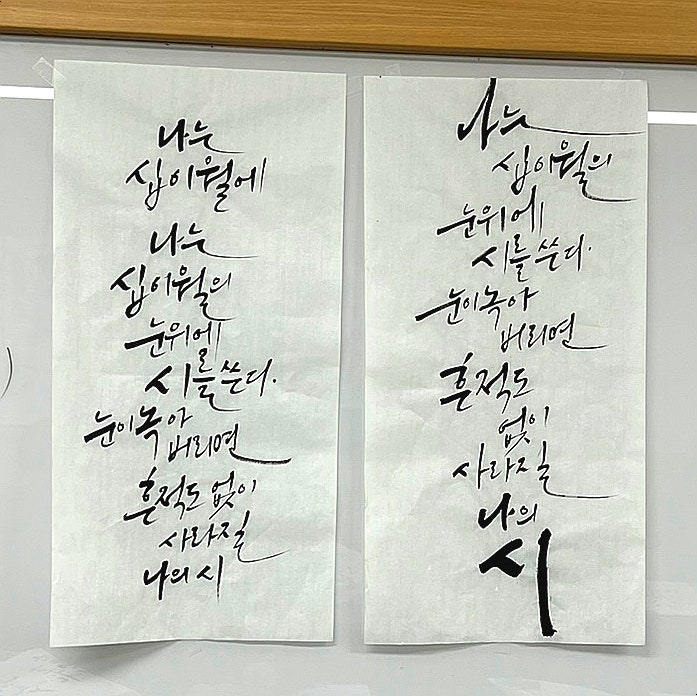 나는
십이월에
나는
십이월의
눈위에
시를 쓴다.
눈이녹아
버리면
흔적도 없이
사라질
나의 시
나는
십이월의
눈위에
시를 쓴다.
눈이녹아
버리면
흔적도
없이
사라질
나의
시